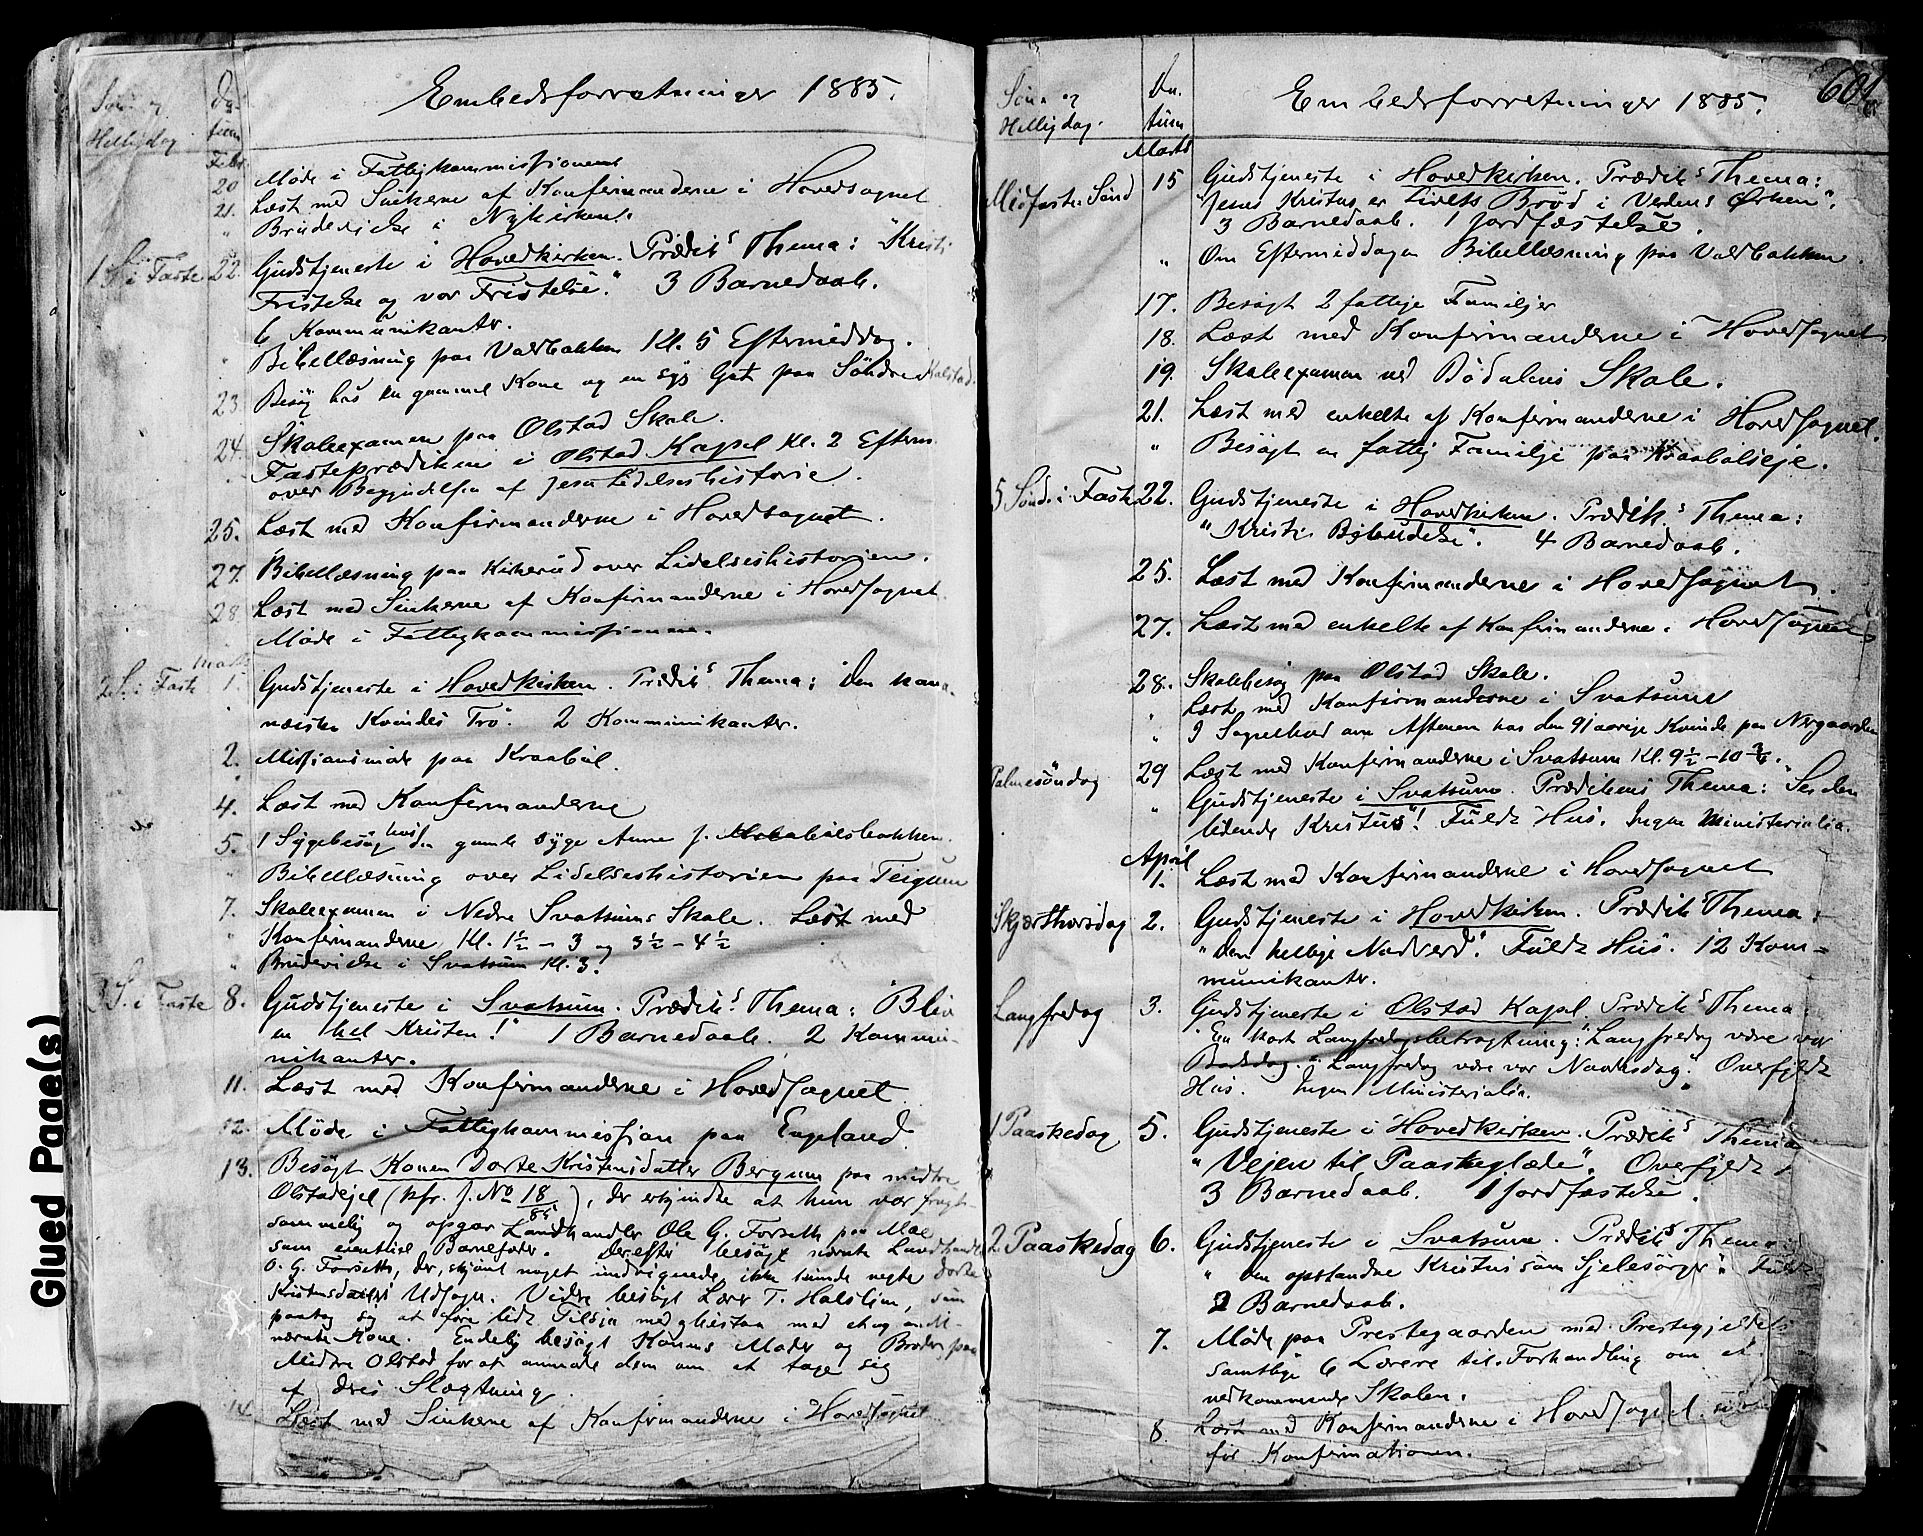 Embedsforretninger 1885.
Søn- og
Helligdag
Da-
tum
Febr.
20 Møde i Fattigkommissionen
21. Læst med Sinkerne af Konfirmanderne i Hovedsognet.
" Brudevielse i Nykirken.
1 S. i Faste 22. Gudstjeneste i Hovedkirken. Prædik.s Thema: "Kristi
Fristelse og vor Fristelse". 3 Barnedaab.
6 Kommunikanter.
" Bibellæsning paa Valbakken Kl. 5 Eftermiddag.
23. Besøg hos en gammel Kone og en syg Gut paa Søndre
24. Skoleexamen paa Olstad Skole.
" Fasteprædiken i Olstad Kapel Kl. 2 Efterm.
over Begyndelsen af Jesu Lidelseshistorie.
25. Læst med Konfirmanderne i Hovedsognet.
27. Bibellæsning paa Kikerud over Lidelseshistorien.
28. Læst med Sinkerne af Konfirmanderne i Hovedsognet.
Møde i Fattigkommissionen.
Marts
2 S. i Faste 1. Gudstjeneste i Hovedkirken. Prædik.s Thema: Den kana-
næiske Kvindes Tro. 2 Kommunikanter.
2. Missionsmøde paa Kraabøl.
4. Læst med Konfirmanderne
5. 1 Sygebesøg hos den gamle syge Anne J.
" Bibellæsning over Lidelseshistorien paa Teigum
7. Skoleexamen i Nedre Svatsums Skole. Læst med
" Konfirmanderne Kl. 1½ - 3 og 3½ - 4½
" Brudevielse i Svatsum Kl. 3.
3 S. i Faste 8. Gudstjeneste i Svatsum. Prædik.s Thema: "Bliv
en hel Kristen!" 1 Barnedaab. 2 Kommu-
nikanter.
11. Læst med Konfirmanderne i Hovedsognet
12. Møde i Fattigkommission paa Engeland.
13. Besøgt Konen Dorte Kristensdatter Bergum paa midtre
Olstadejet (kfr. J. No 18/85), der erkjendte at hun var frugt-
sommelig og opgav Landhandler Ole G. Forseth paa Moe
som eventuel Barnefader. Derefter besøgt nævnte Landhandler
O. G. Forseth, der, skjønt noget undvigende, ikke kunde negte Dorte
Kristensdatters Udsagn. Videre besøgt Lærer T. Halstien, som
paatog sig at føre lidt Tilsyn med
nævnte Kone. Endelig besøgt Konens Moder og Broder paa
Midtre Olstad for at anmode dem om at tage sig
af deres Slægtning.
14. Læst med Sinkerne af Konfirmanderne i Hovedsognet
Embedsforretninger 1885.
601
Søn- og
Helligdag.
Da-
tum
Marts
Midfaste Sønd 15 Gudstjeneste i Hovedkirken. Prædik.s Thema:
"Jesus Kristus er Livets Brød i Verdens Ørken".
3 Barnedaab. 1 Jordfæstelse.
" Om Eftermiddagen Bibellæsning paa Valbakken.
17. Besøgt 2 fattige Familjer
18. Læst med Konfirmanderne i Hovedsognet
19. Skoleexamen ved Bødalens Skole.
21. Læst med enkelte af Konfirmanderne i Hovedsognet.
" Besøgt en fattig Familje paa Kraabølseje.
5 Sønd. i Faste 22. Gudstjeneste i Hovedkirken. Prædik.s Thema:
"Kristi Bebudelse". 4 Barnedaab.
25. Læst med Konfirmanderne i Hovedsognet.
27. Læst med enkelte af Konfirmanderne i Hovedsognet
28. Skolebesøg paa Olstad Skole.
" Læst med Konfirmanderne i Svatsum
" I Sognebud om Aftenen hos den 91 aarige Kvinde paa Nørgaarden
Palmesøndag 29 Læst med Konfirmanderne i Svatsum Kl. 9½ - 10¾.
" Gudstjeneste i Svatsum. Prædikens Thema: "Se den
lidende Kristus"! Fuldt Hus. Ingen Ministerialia.
April
1. Læst med Konfirmanderne i Hovedsognet
Skjærthorsdag 2. Gudstjeneste i Hovedkirken. Prædik.s Thema:
"Den hellige Nadverd". Fuldt Hus. 12 Kom-
munikanter.
Langfredag 3. Gudstjeneste i Olstad Kapel. Prædik.s Thema
"En kort Langfredagsbetragtning": "Langfredag være vor
Bodsdag." "Langfredag være vor Naadesdag". Overfyldt
Hus. Ingen Ministerialia.
1 Paaskedag 5. Gudstjeneste i Hovedkirken. Prædik.s Thema
"Vejen til Paaskeglæde". Overfyldt
3 Barnedaab. 1 Jordfæstelse.
2. Paaskedag 6. Gudstjeneste i Svatsum. Prædik.s Thema:
"Den opstandne Kristus som Sjelesørger". Fuldt
2 Barnedaab.
7. Møde paa Prestegaarden med Prestegjeldets
samtlige 6 Lærere til Forhandling om et
vedkommende Skolen.
8. Læst med Konfirmanderne i Hovedsognet
før Konfirmationen.
Glued Page(s)